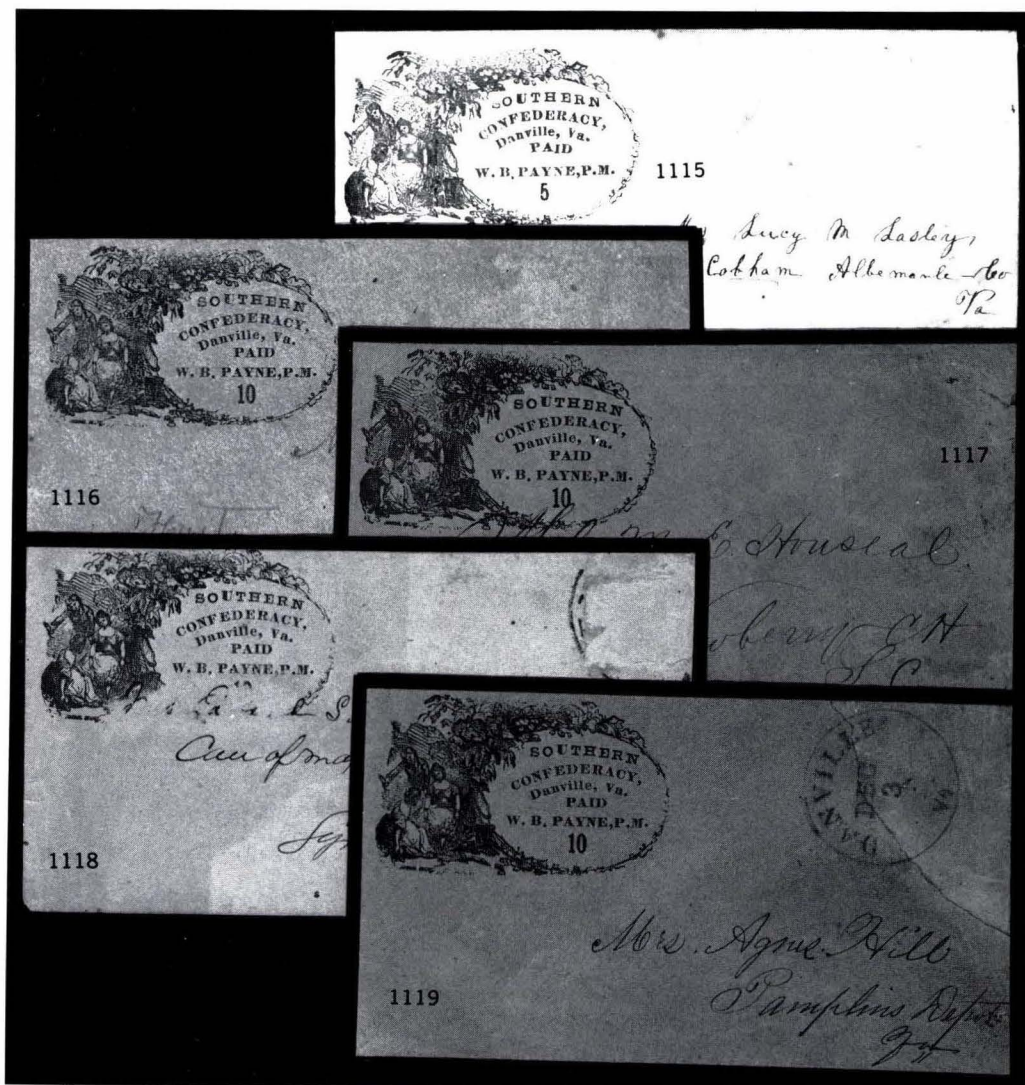 SOUTHERN
CONFEDERACY,
Danville, Va.
PAID
W. B. PAYNE, P.M.
5
1115
Lucy M Lasley,
Cobham Albemarle Co
Va
SOUTHERN
CONFEDERACY,
Danville, Va.
PAID
W. B. PAYNE, P.M.
10
1116
SOUTHERN
CONFEDERACY,
Danville, Va.
PAID
W. B. PAYNE, P.M.
10
1117
E Houseal
wberry C.H
S.C
SOUTHERN
CONFEDERACY,
Danville, Va.
PAID
W. B. PAYNE, P.M.
Care of
1118
SOUTHERN
CONFEDERACY,
Danville, Va.
PAID
W. B. PAYNE, P.M.
10
DANVILLE VA
DEC
3
Mrs. Agnes Hill
Pamplins Depot
1119